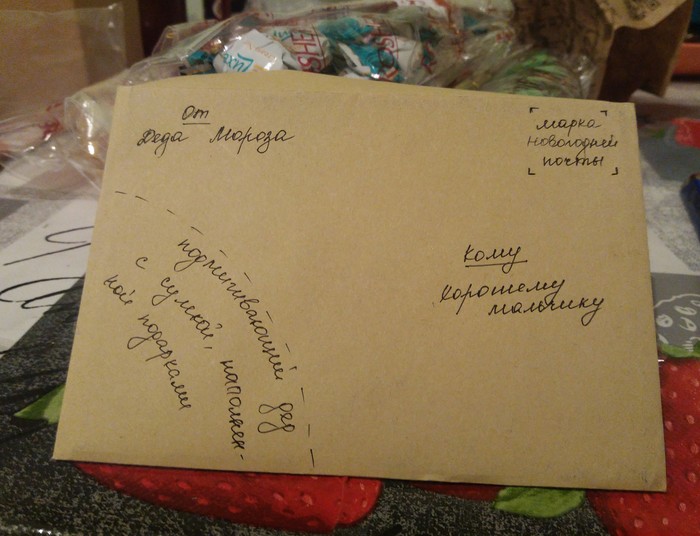 От
Деда Мороза
марка
новогодней
почты
Кому
Хорошему
мальчику
подмигивающий дед
с сумкой, наполнен-
ной подарками